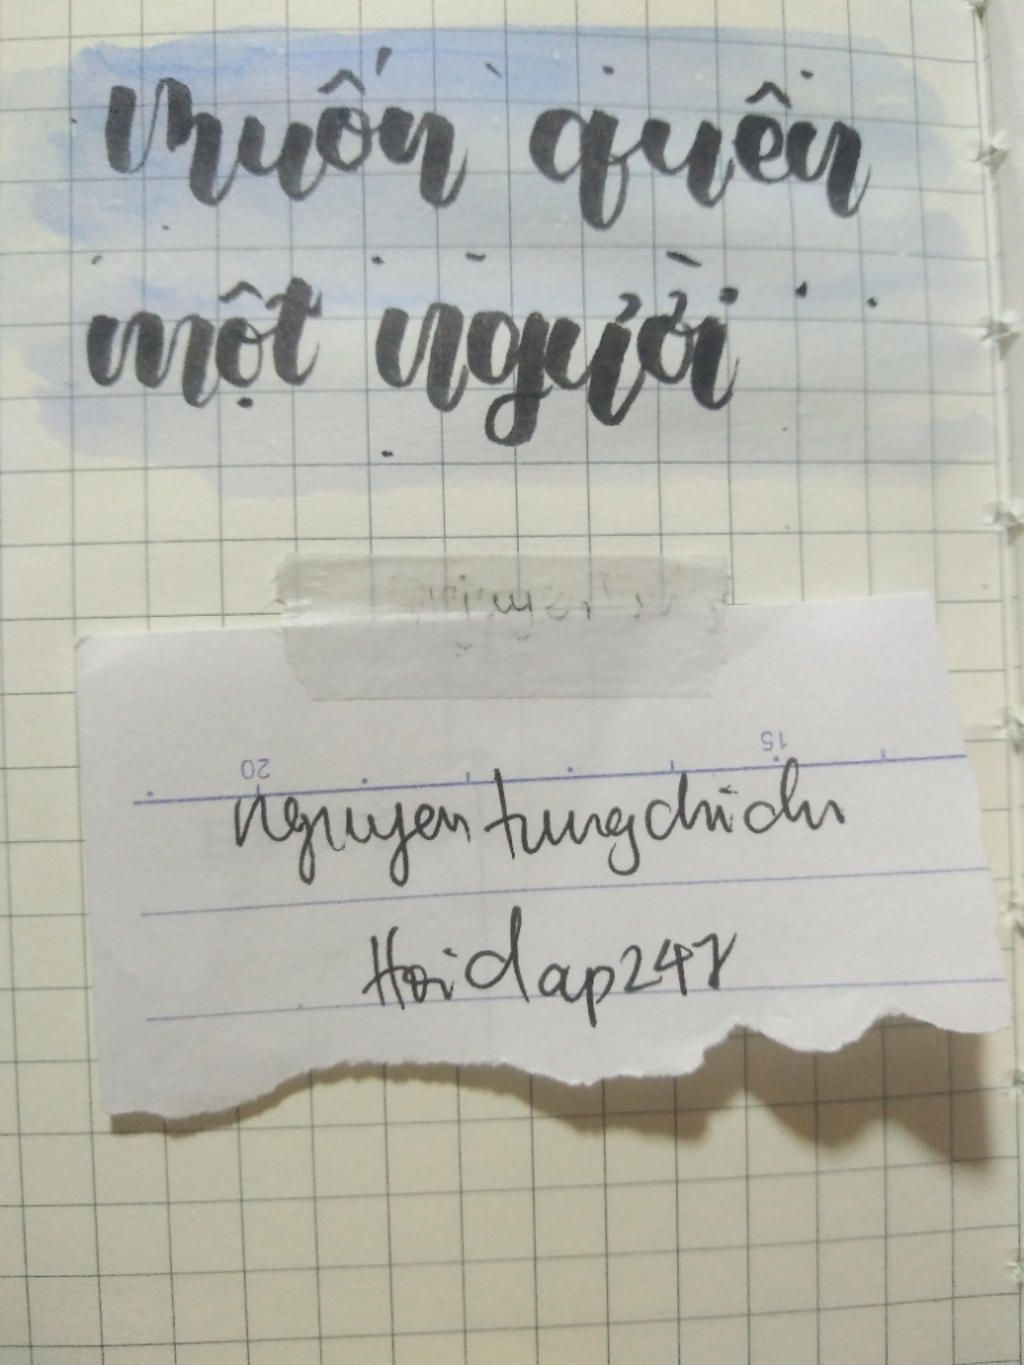 muốn quên
một người...
20 15
nguyen tung chi chi
Hoidap247